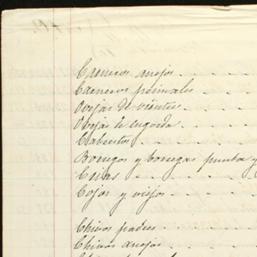 Carneros anojos
Carneros primales
Ovejas de vientre
Ovejas de engorde
Borregos y borregas punta y
Cojos y viejos
Chivos padres
Chivos anojos